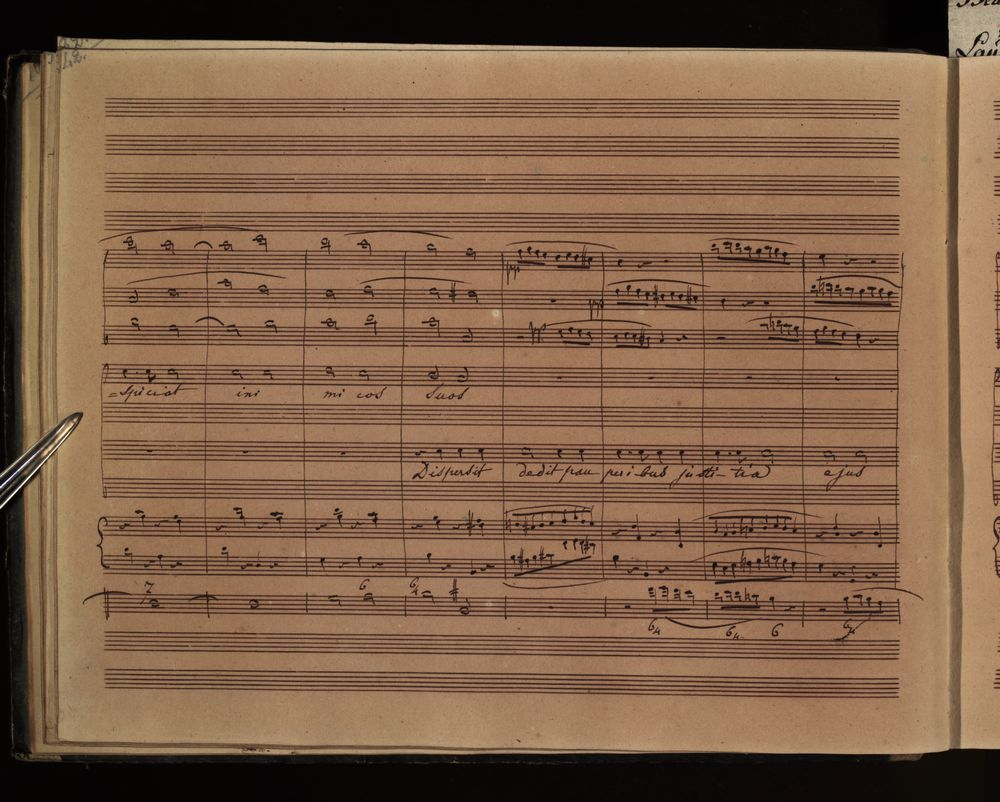 pp
pp
pp
=spiciat ini mi cos suos
Dispersit dedit pau peribus justi-tia ejus
7 6 6/4
6/4 6/4 6